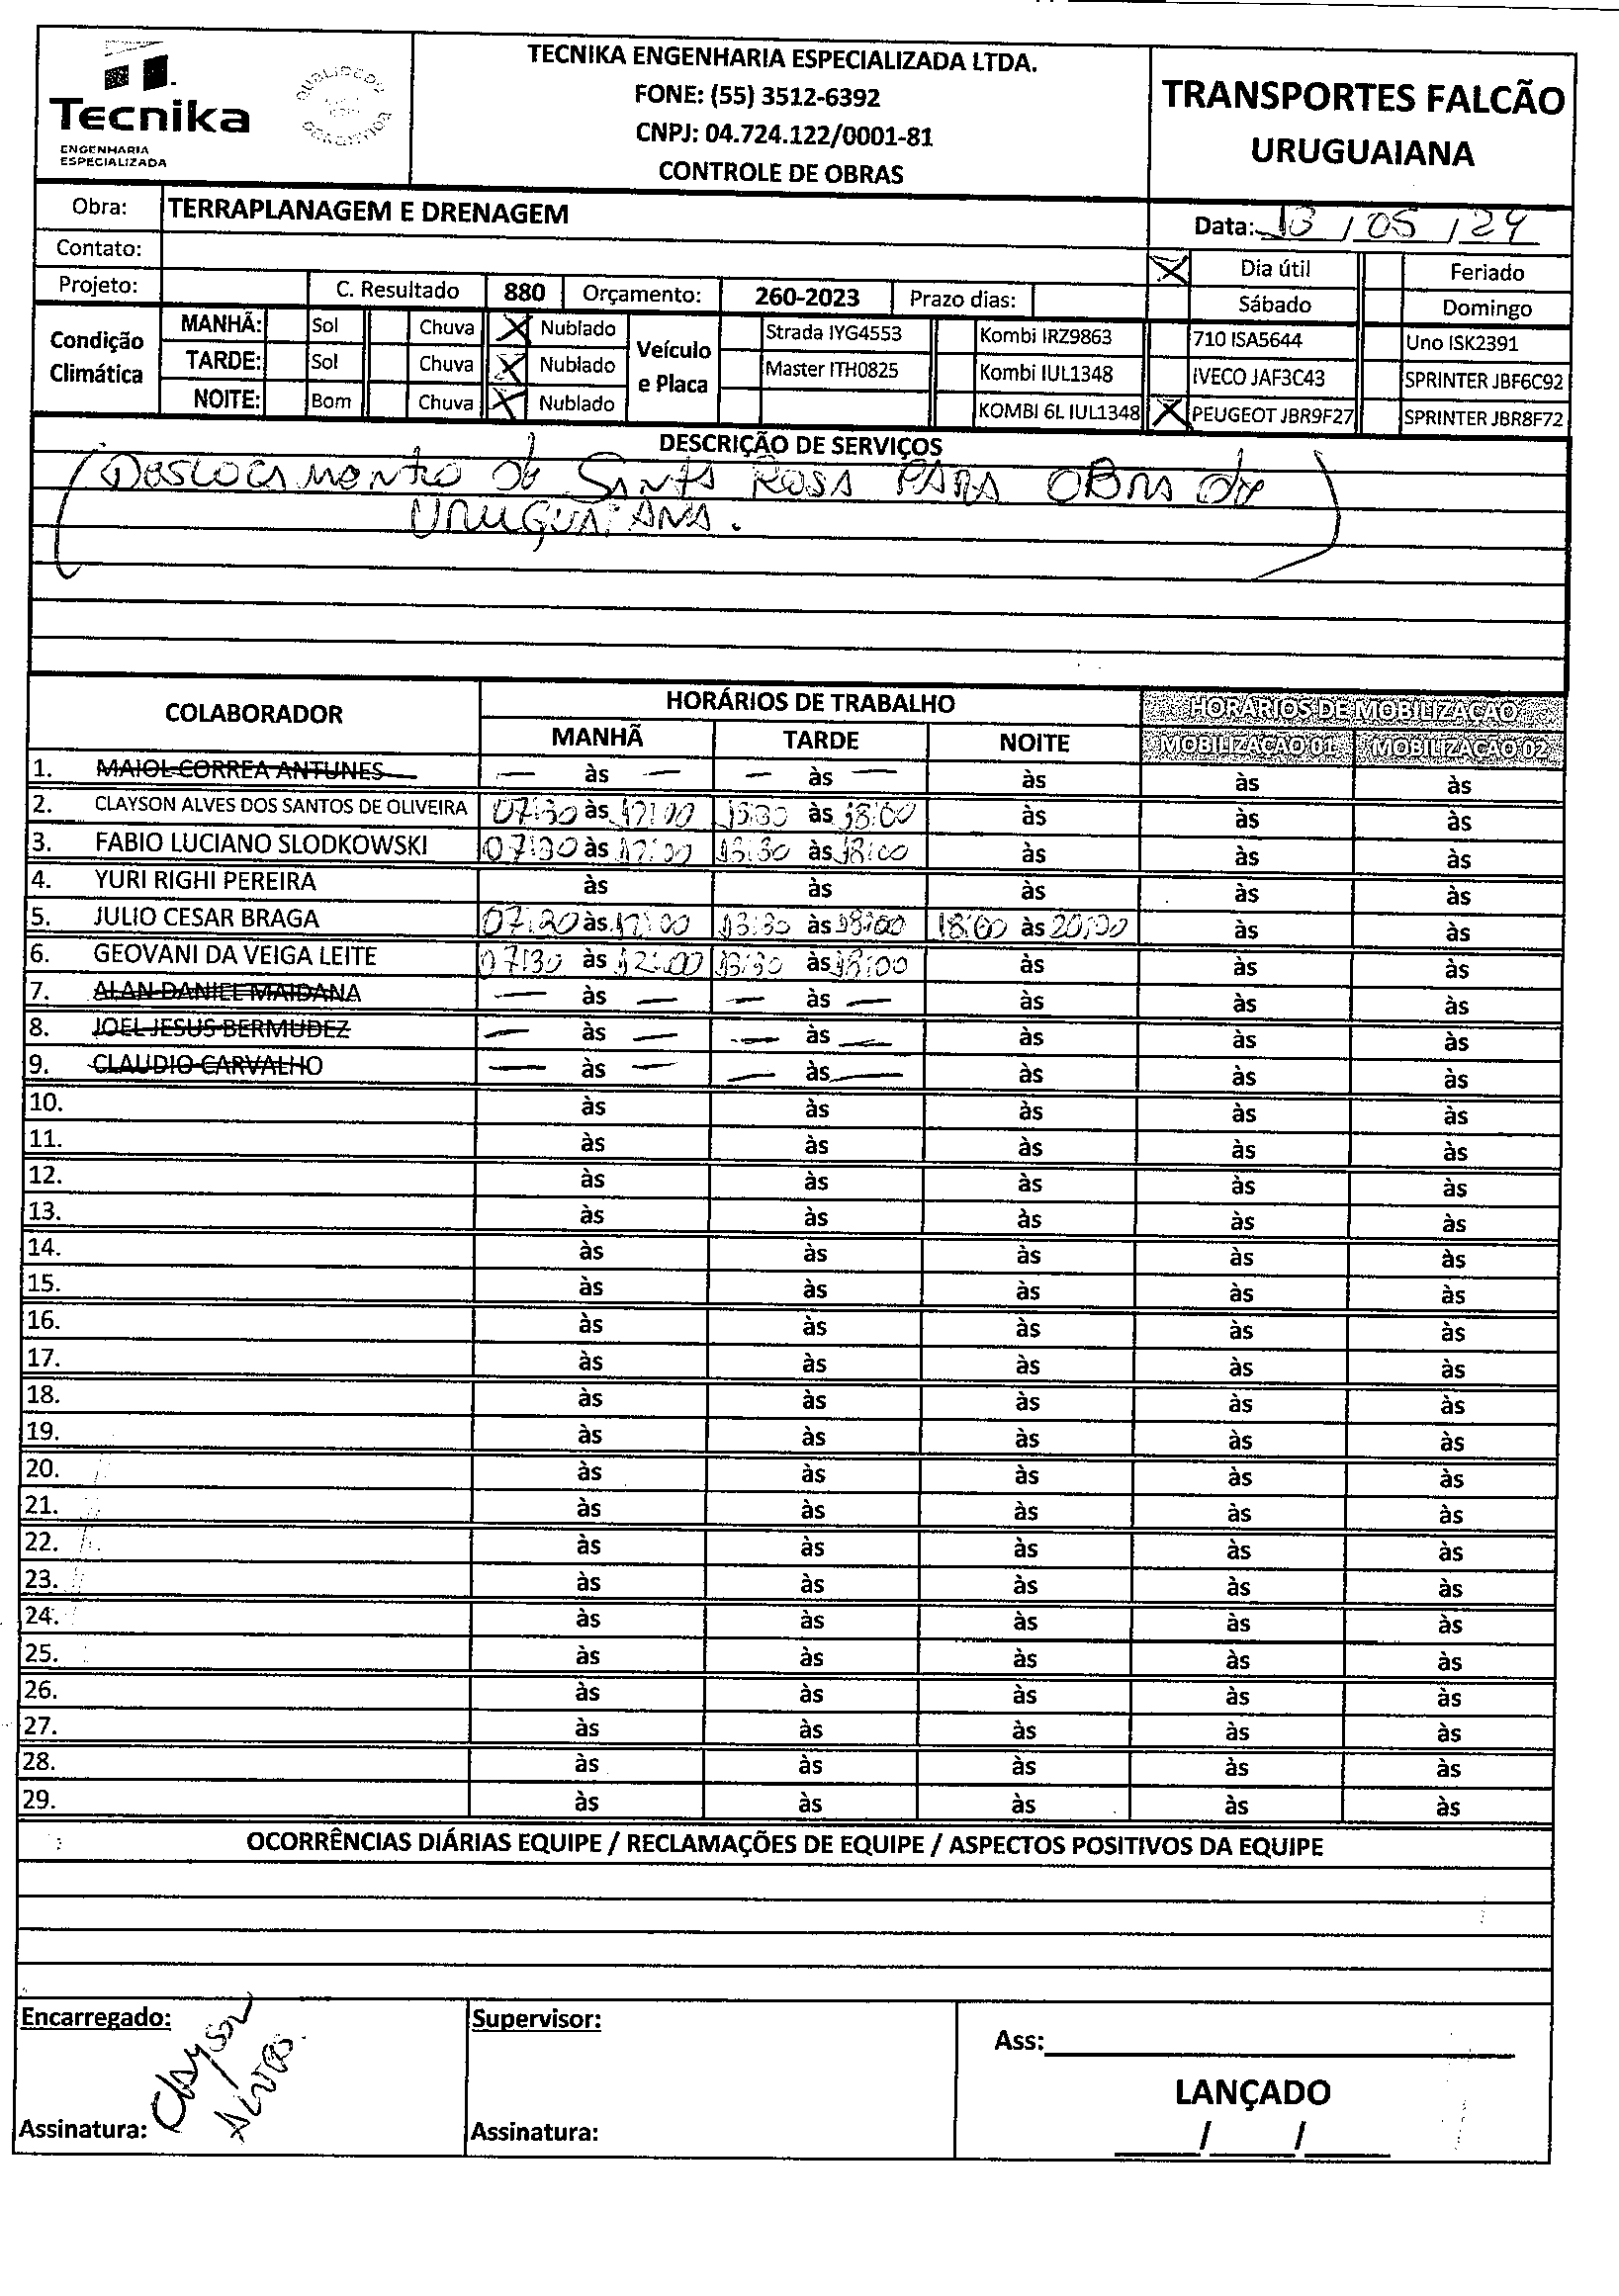 Tecnika
ENGENHARIA
ESPECIALIZADA
TECNIKA ENGENHARIA ESPECIALIZADA LTDA.
FONE: (55) 3512-6392
CNPJ: 04.724.122/0001-81
CONTROLE DE OBRAS
TRANSPORTES FALCÃO
URUGUAIANA
Obra: TERRAPLANAGEM E DRENAGEM
Data: 13/05/24
Contato:
X Dia útil Feriado
Projeto: C. Resultado 880 Orçamento: 260-2023 Prazo dias:
Sábado Domingo
Condição Climática
MANHÃ: Sol Chuva X Nublado
TARDE: Sol Chuva X Nublado
NOITE: Bom Chuva X Nublado
Veículo e Placa
Strada IYG4553 Kombi IRZ9863 710 ISA5644 Uno ISK2391
Master ITH0825 Kombi IUL1348 IVECO JAF3C43 SPRINTER JBF6C92
KOMBI 6L IUL1348 X PEUGEOT JBR9F27 SPRINTER JBR8F72
DESCRIÇÃO DE SERVIÇOS
(Deslocamento de Santa Rosa PARA OBRA de
URUGUAIANA.)
COLABORADOR HORÁRIOS DE TRABALHO HORÁRIOS DE MOBILIZAÇÃO
MANHÃ TARDE NOITE MOBILIZAÇÃO 01 MOBILIZAÇÃO 02
1. MAIOL CORREA ANTUNES — às — — às — às às às
2. CLAYSON ALVES DOS SANTOS DE OLIVEIRA 07:30 às 12:00 13:30 às 18:00 às às às
3. FABIO LUCIANO SLODKOWSKI 07:30 às 12:00 13:30 às 18:00 às às às
4. YURI RIGHI PEREIRA às às às às às
5. JULIO CESAR BRAGA 07:30 às 12:00 13:30 às 18:00 18:00 às 20:00 às às
6. GEOVANI DA VEIGA LEITE 07:30 às 12:00 13:30 às 18:00 às às às
7. ALAN DANIEL MAIDANA — às — — às — às às às
8. JOEL JESUS BERMUDEZ — às — — às — às às às
9. CLAUDIO CARVALHO — às — — às — às às às
10. às às às às às
11. às às às às às
12. às às às às às
13. às às às às às
14. às às às às às
15. às às às às às
16. às às às às às
17. às às às às às
18. às às às às às
19. às às às às às
20. às às às às às
21. às às às às às
22. às às às às às
23. às às às às às
24. às às às às às
25. às às às às às
26. às às às às às
27. às às às às às
28. às às às às às
29. às às às às às
OCORRÊNCIAS DIÁRIAS EQUIPE / RECLAMAÇÕES DE EQUIPE / ASPECTOS POSITIVOS DA EQUIPE
Encarregado:
Clayson
Alves.
Assinatura:
Supervisor:
Assinatura:
Ass:
LANÇADO
___/___/___